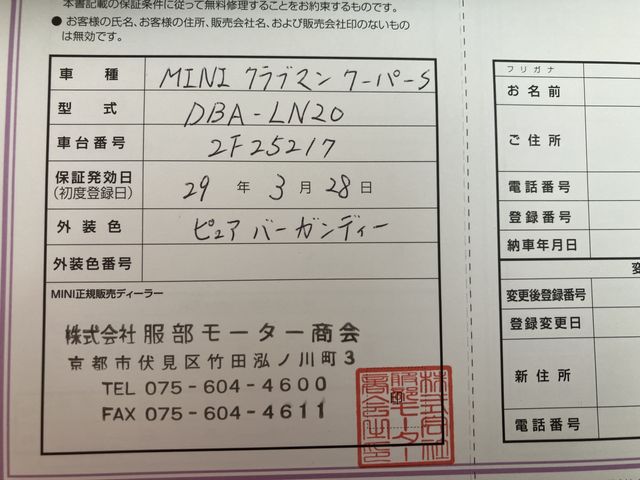 本書記載の保証条件に従って無料修理することをお約束するものです。
● お客様の氏名、お客様の住所、販売会社名、および販売会社印のないもの
は無効です。
車種 MINI クラブマン クーパーS
型式 DBA-LN20
車台番号 2F25217
保証発効日
(初度登録日) 29 年 3 月 28 日
外装色 ピュア バーガンディー
外装色番号
MINI正規販売ディーラー
株式会社 服部モーター商会
京都市伏見区竹田泓ノ川町3
TEL 075-604-4600
FAX 075-604-4611
印
株式会社
服部モーター
商会之印
フリガナ
お名前
ご住所
電話番号
登録番号
納車年月日
変
変更後登録番号
登録変更日
新住所
電話番号